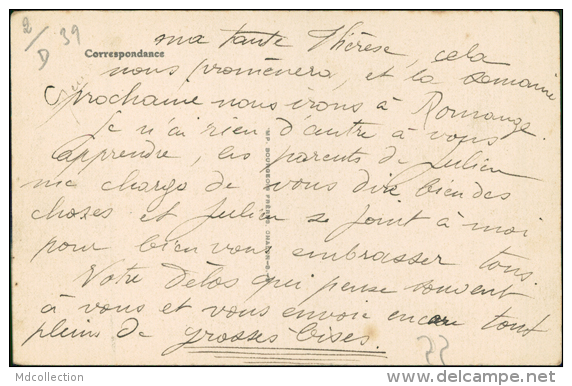 2/D 39
ma tante Thérèse, cela
Correspondance
nous promènera, et la semaine
prochaine nous irons à Romange.
Je n'ai rien d'autre à vous
apprendre, les parents de Julien
me charge de vous dire bien des
choses et Julien se joint à moi
pour bien vous embrasser tous.
Votre Délos qui pense souvent
à vous et vous envoie encore tout
pleins de grosses bises.
22
Mdcollection
www.delcampe.net